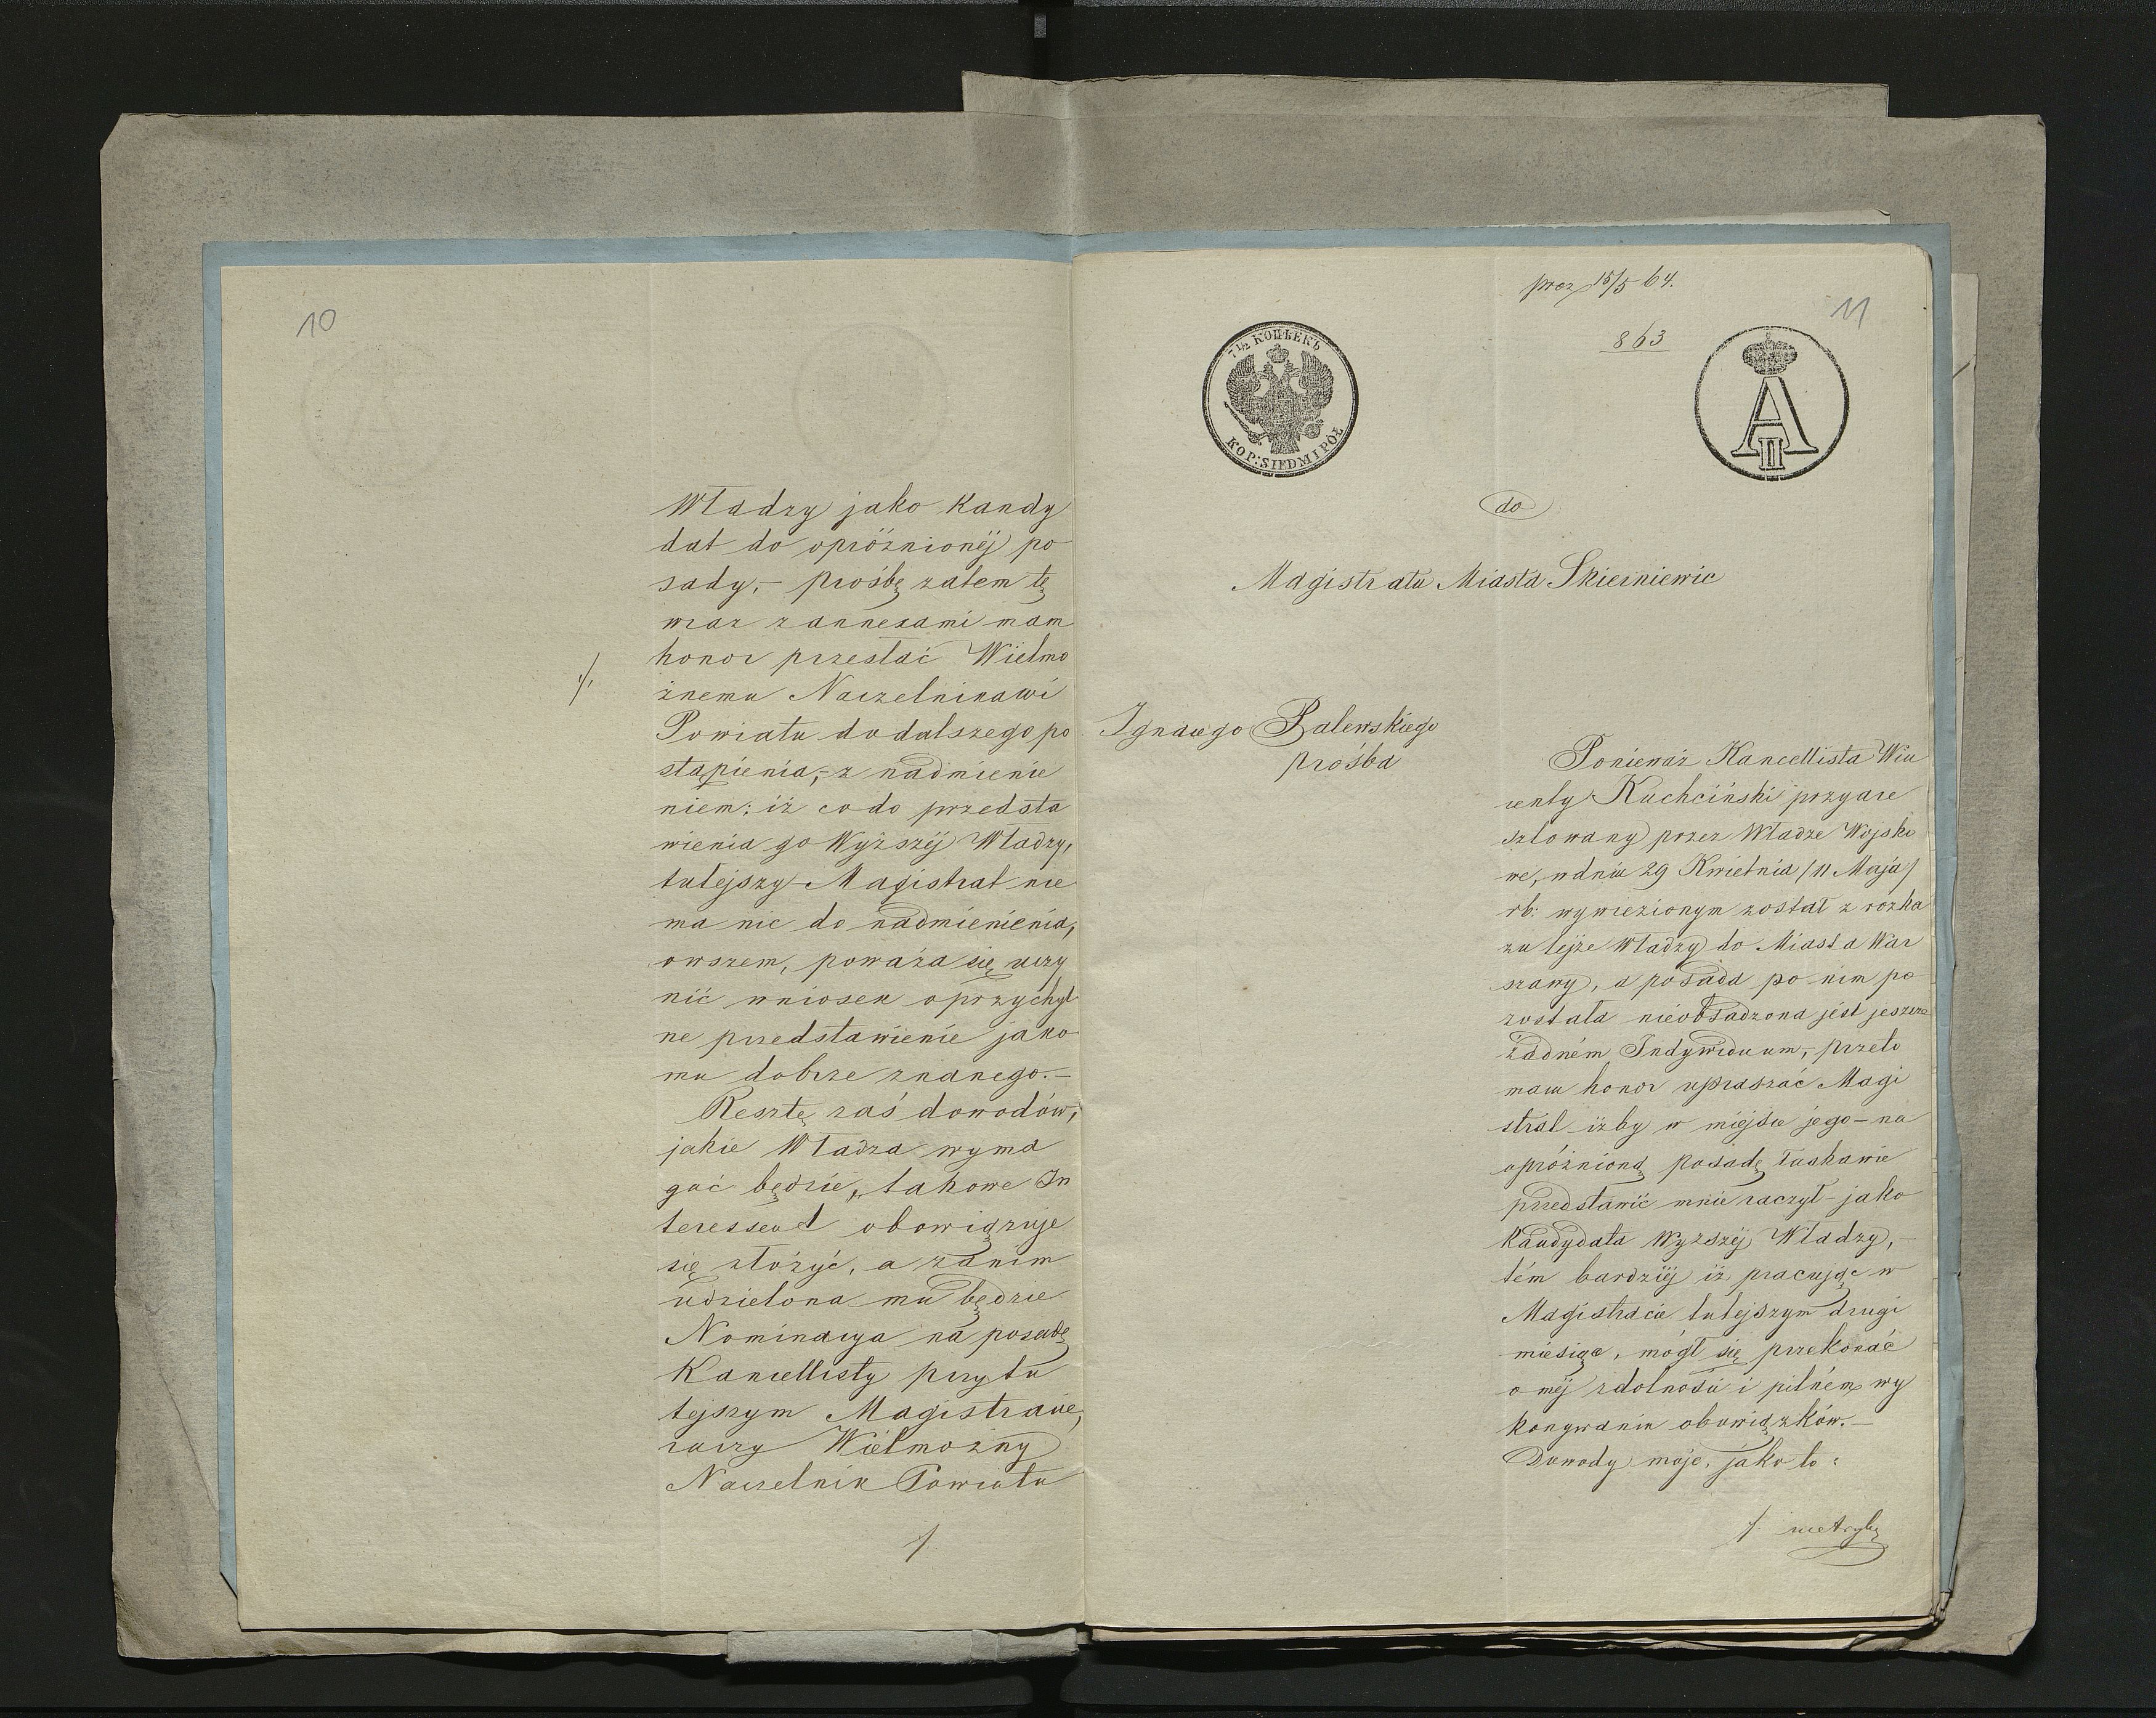 10
Władzy jako Kandy
dat do opróżnionéj po
sady,- prośbę zatem tę
wraz z annexami mam
honor przesłać Wielmo
żnemu Naczelnikowi
Powiatu do dalszego po
stąpienia,- z nadmienie
niem: iż co do przedsta
wienia go Wyższéj Władzy,
tutejszy Magistrat nie
ma nic do nadmienienia,
owszem, poważa się uczy
nić wniosek o przychyl
ne przedstawienie jako
mu dobrze znanego.-
Resztę zaś dowodów,
jakie Władza wyma
gać będzie, takowe In
teressent obowiązuje
się złożyć, a zanim
udzielona mu będzie
Nominacya na posadę
Kancellisty przy tu
tejszym Magistracie,
raczy Wielmożny
Naczelnik Powiatu
prez 15/5 64.
11
863
7 1/2 КОПѢЕКЪ
KOP: SIEDM I PÓŁ
A II
do
Magistratu Miasta Skierniewic
Ignacego Palewskiego
prośba
Ponieważ Kancellista Win
centy Kuchciński przyare
sztowany przez Władze Wojsko
we, w dniu 29 Kwietnia /11 Maja/
rb: wywiezionym został z rozka
zu tejże Władzy do Miasta War
szawy, a posada po nim po
została nieobsadzona jest jeszcze
żadném Indywiduum,- przeto
mam honor upraszać Magi
strat iżby w miejsce jego - na
opróżnioną posadę łaskawie
przedstawić mnie raczył - jako
Kandydata Wyższéj Władzy,-
tém bardziéj iż pracując w
Magistracie tutejszym drugi
miesiąc, mógł się przekonać
o méj zdolności i pilném wy
konywaniu obowiązków.-
Dowody moje, jako to:
/. metrykę